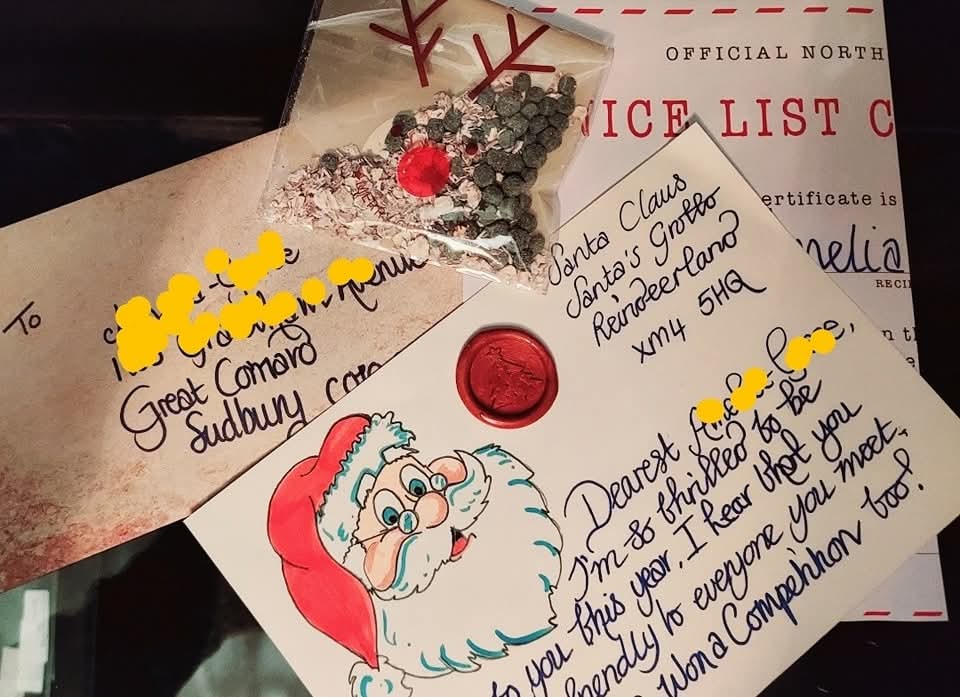 OFFICIAL NORTH
NICE LIST C
ertificate is
nelia
RECI
n th
To
Great Cornard
Sudbury CO10
Santa Claus
Santa's Grotto
Reindeerland
XM4 5HQ
Dearest
I'm so thrilled to be
this year. I hear that you
to everyone you meet.
to you
Won a Competition too!